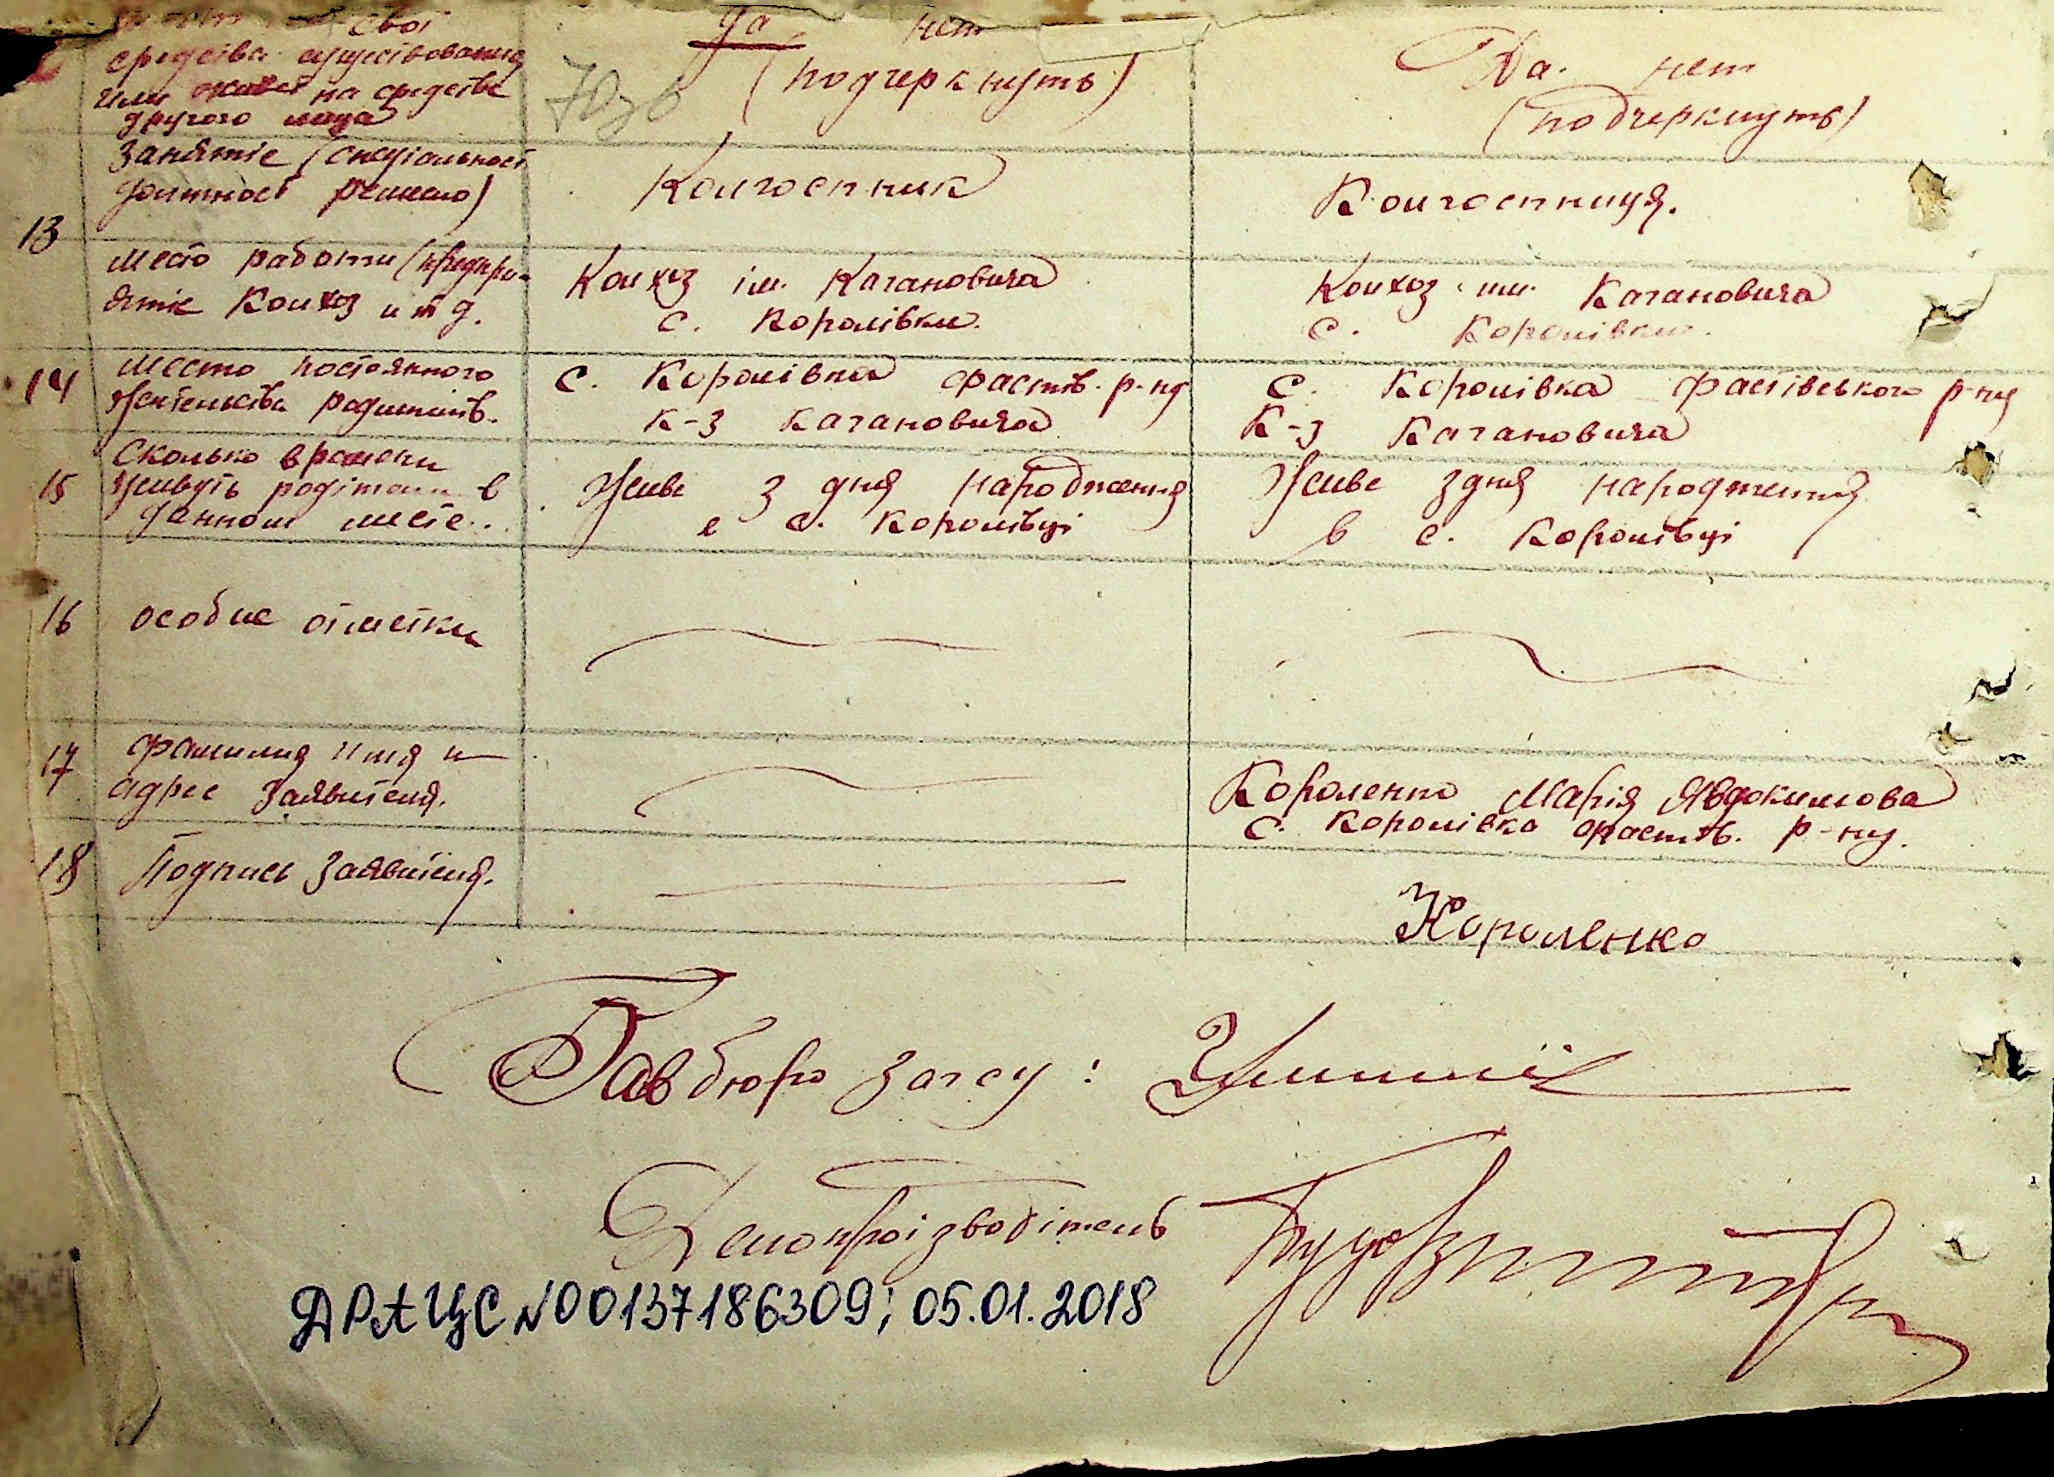 свої
средства существования
или живет на средства
другого лица
да нет
(подчеркнуть)
Да. нет
(подчеркнуть)
13
Занятіе (спеціальност
должност ремесло)
Колгоспник
Колгоспниця.
место работи (предпри-
ятіе Колхоз и т д.
Колхоз ім. Кагановича
с. Королівки.
Колхоз им. Кагановича
с. Королівки.
14
место постоянного
жительства родителів.
с. Королівка фастів. р-ну
к-з Кагановича
с. Королівка фастівського р-ну
к-з Кагановича
15
Сколько времени
живуть родітели в
данном месте..
Живе з дня народження
в с. Королівці
Живе з дня народження
в с. Королівці
16
особие отметки
17
фамилия имя и
адрес заявителя.
Короленко Марія Явдокимова
с. Королівка фастів. р-ну.
18
Подпись заявителя.
Короленко
Зав бюро загсу:
Делопроізводітель
ДРАЦС №00137186309; 05.01.2018